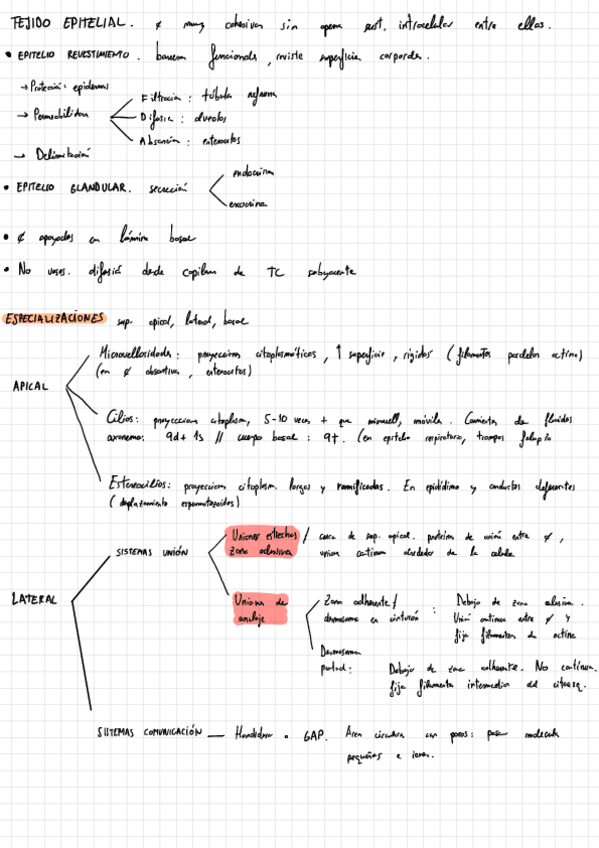 TEJIDO EPITELIAL. ¢ muy cohesivas sin apenas sust. intracelular entre ellas.
• EPITELIO REVESTIMIENTO. barrera funcional, reviste superficie corporal.
→ Protección: epidermis
→ Permeabilidad
Filtración: túbulo
Difusión: alveolos
Absorción: enterocitos
→ Delimitación
• EPITELIO GLANDULAR. secreción
endocrina
exocrina
• ¢ apoyadas en lámina basal
• No vasos. difusió desde capilares de TC subyacente
ESPECIALIZACIONES sup. apical, lateral, basal
APICAL
Microvellosidades: proyecciones citoplasmáticas, ↑ superficie, rígidas (filamentos paralelos actina)
(en ¢ absortiva, enterocitos)
Cilios: proyeccion citoplasm, 5-10 veces + que microvell, móviles. Corrientes de fluidos
axonema: 9d + 1s // cuerpo basal: 9t. (en epitelio respiratorio, trompas falopio
Estereocilios: proyeccion citoplasm. largas y ramificadas. En epidídimo y conductos deferentes
(desplazamiento espermatozoides)
LATERAL
SISTEMAS UNIÓN
Uniones estrechas / cerca de sup. apical. proteínas de unió entre ¢,
zona oclusiva union continua alrededor de la celula
Uniones de
anclaje
Zona adherente / : Debajo de zona oclusiva.
desmosoma en cinturón Unió continua entre ¢ y
fija filamentos de actina
Desmosoma
puntual: Debajo de zona adherente. No continua.
fija filamentos intermedios del citoesq.
SISTEMAS COMUNICACIÓN — Hendidura o GAP. Area circular con poros: pasa molecula
pequeñas e iones.